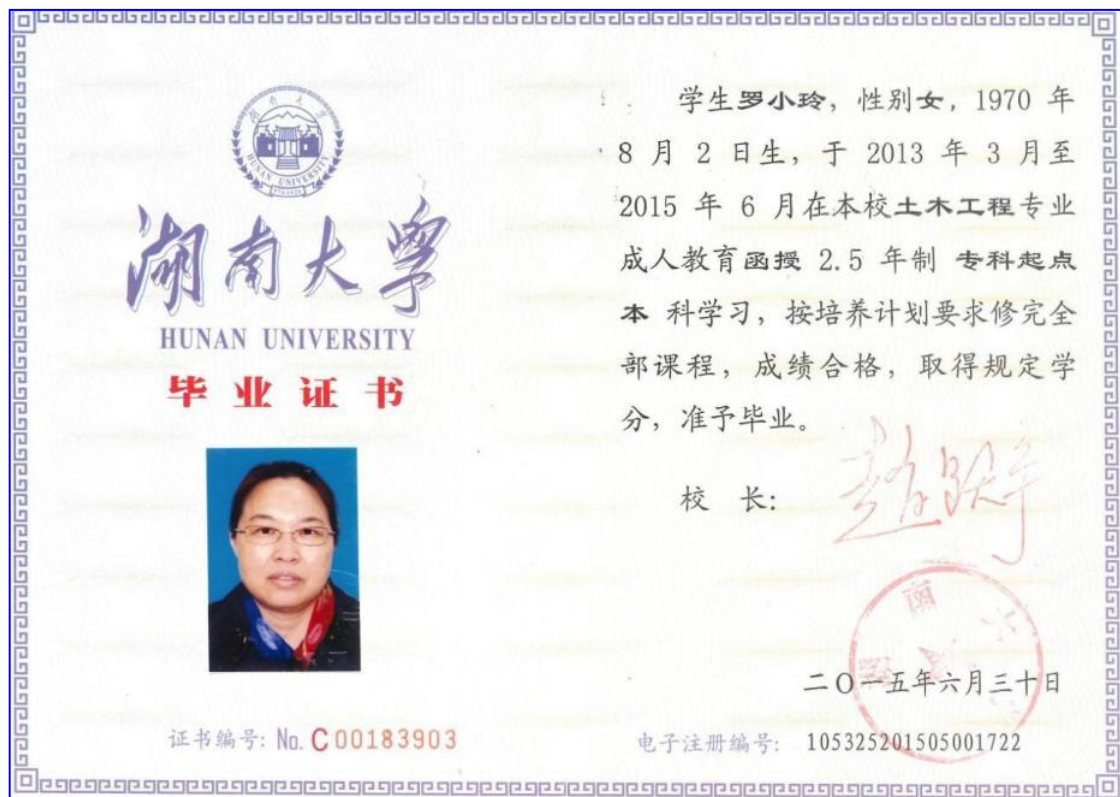 湖南大学
HUNAN UNIVERSITY
湖南大學
HUNAN UNIVERSITY
毕业证书
证书编号: No. C00183903
学生罗小玲，性别女，1970 年
8 月 2 日生，于 2013 年 3 月至
2015 年 6 月在本校土木工程专业
成人教育函授 2.5 年制 专科起点
本 科学习，按培养计划要求修完全
部课程，成绩合格，取得规定学
分，准予毕业。
校 长：
二O一五年六月三十日
电子注册编号: 105325201505001722